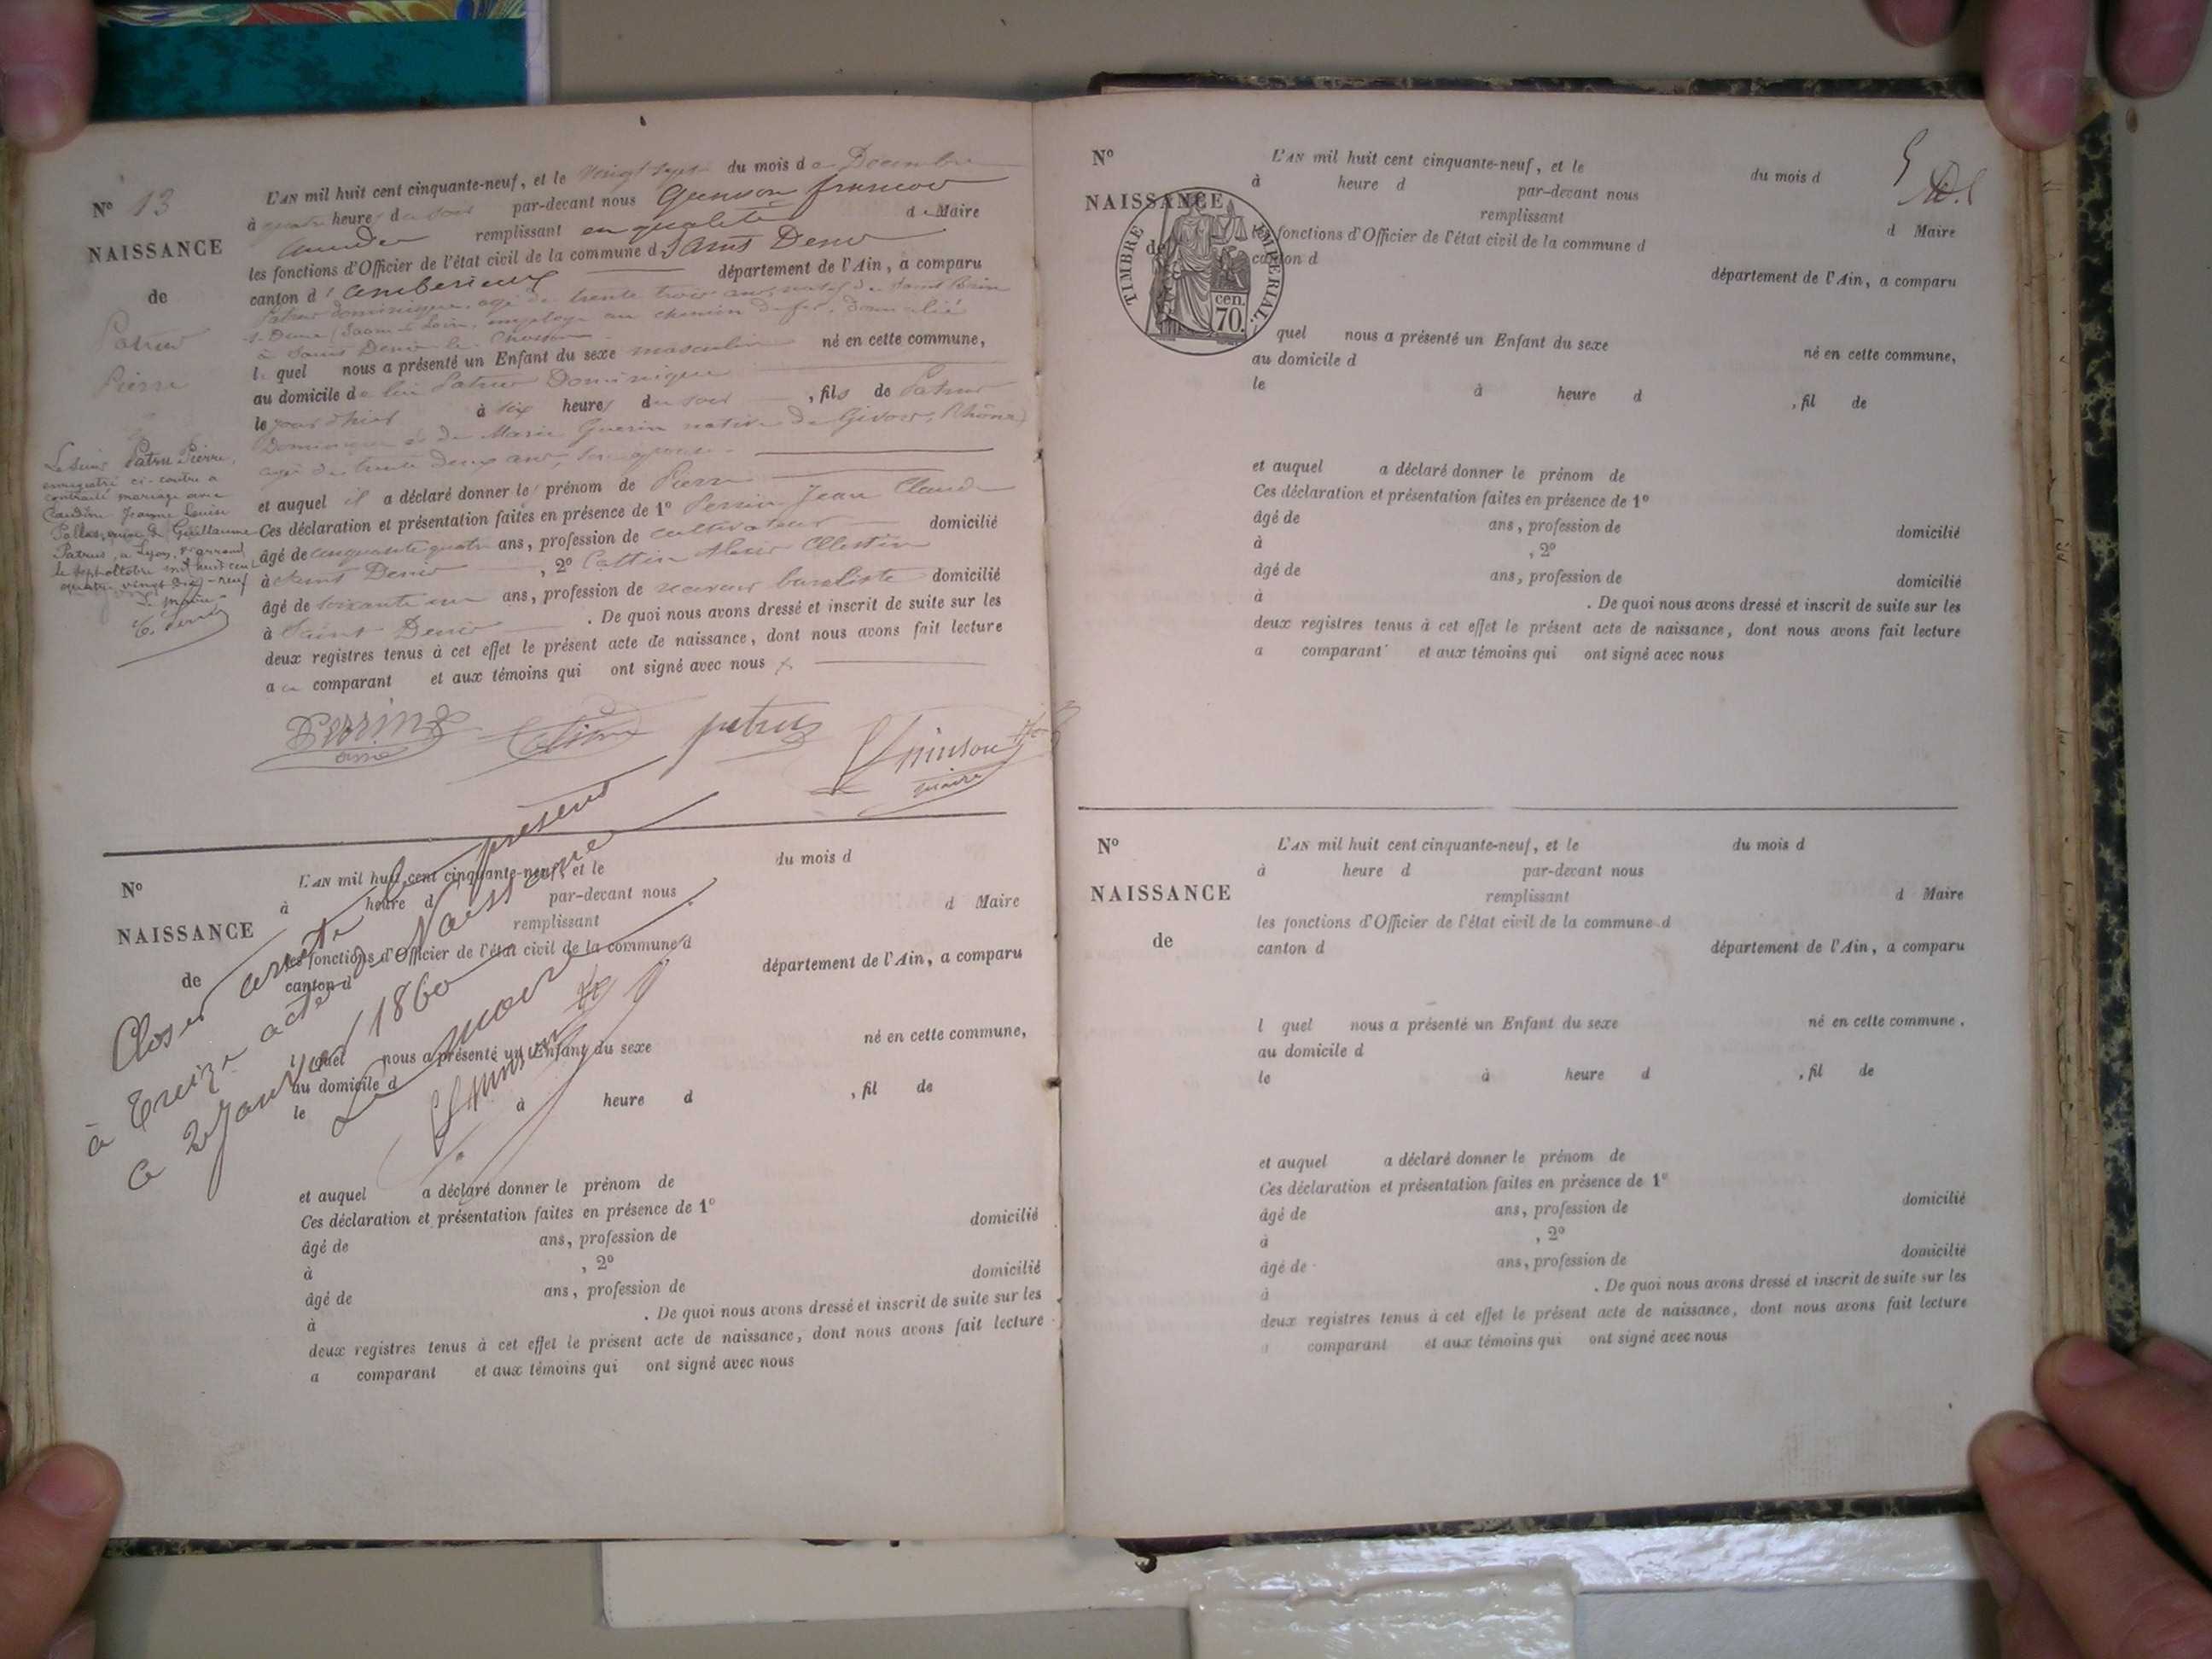 N° 13
NAISSANCE
de
Patrus
Pierre
L'AN mil huit cent cinquante-neuf, et le vingt sept du mois de Décembre
à quatre heures du soir par-devant nous Guinson françois
remplissant en qualité de Maire
les fonctions d'Officier de l'état civil de la commune d Saint Denis
canton d'amberieux département de l'Ain, a comparu
Patrus dominique, agé de trente trois ans, natif de Saint
(Saone & Loire, employé au chemin de fer, domicilié
à Saint Denis le Chosson
lequel nous a présenté un Enfant du sexe masculin né en cette commune,
au domicile de lui Patrus Dominique
le jour d'hier à six heures du soir, fils de Patrus
Dominique et de Marie Guerin native de Givors, Rhône)
agée de trente deux ans, son epouse.
et auquel il a déclaré donner le prénom de Pierre
Ces déclaration et présentation faites en présence de 1° Perrin Jean Claude
âgé de cinquante quatre ans, profession de cultivateur domicilié
à Saint Denis, 2° Cottin Célestin
âgé de soixante un ans, profession de receveur buraliste domicilié
à Saint Denis. De quoi nous avons dressé et inscrit de suite sur les
deux registres tenus à cet effet le présent acte de naissance, dont nous avons fait lecture
au comparant et aux témoins qui ont signé avec nous
Le sieur Patru Pierre,
enregistré ci-contre a
contracté mariage avec
Claudine Jeanne Louise
Guillaume
Patrus, à Lyon,
le sept octobre mil huit cent
quatre vingt dix-neuf
Le maire
Perrin
patrus
Guinson
maire
N°
NAISSANCE
de
L'AN mil huit cent cinquante-neuf, et le du mois d
à heure d par-devant nous
remplissant d Maire
les fonctions d'Officier de l'état civil de la commune d
canton d département de l'Ain, a comparu
l quel nous a présenté un Enfant du sexe né en cette commune,
au domicile d
le à heure d , fil de
et auquel a déclaré donner le prénom de
Ces déclaration et présentation faites en présence de 1°
âgé de ans, profession de domicilié
à , 2°
âgé de ans, profession de domicilié
à . De quoi nous avons dressé et inscrit de suite sur les
deux registres tenus à cet effet le présent acte de naissance, dont nous avons fait lecture
a comparant et aux témoins qui ont signé avec nous
Clos et arrété le présent
à Treize actes de Naissance
ce 2 Janvier 1860
Le maire
Guinson
N°
NAISSANCE
de
TIMBRE IMPERIAL.
70. cen.
L'AN mil huit cent cinquante-neuf, et le du mois d
à heure d par-devant nous
remplissant d Maire
les fonctions d'Officier de l'état civil de la commune d
canton d département de l'Ain, a comparu
quel nous a présenté un Enfant du sexe né en cette commune,
au domicile d
le à heure d , fil de
et auquel a déclaré donner le prénom de
Ces déclaration et présentation faites en présence de 1°
âgé de ans, profession de domicilié
à , 2°
âgé de ans, profession de domicilié
à . De quoi nous avons dressé et inscrit de suite sur les
deux registres tenus à cet effet le présent acte de naissance, dont nous avons fait lecture
a comparant et aux témoins qui ont signé avec nous
N°
NAISSANCE
de
L'AN mil huit cent cinquante-neuf, et le du mois d
à heure d par-devant nous
remplissant d Maire
les fonctions d'Officier de l'état civil de la commune d
canton d département de l'Ain, a comparu
l quel nous a présenté un Enfant du sexe né en cette commune.
au domicile d
le à heure d , fil de
et auquel a déclaré donner le prénom de
Ces déclaration et présentation faites en présence de 1°
âgé de ans, profession de domicilié
à , 2°
âgé de ans, profession de domicilié
à . De quoi nous avons dressé et inscrit de suite sur les
deux registres tenus à cet effet le présent acte de naissance, dont nous avons fait lecture
a comparant et aux témoins qui ont signé avec nous